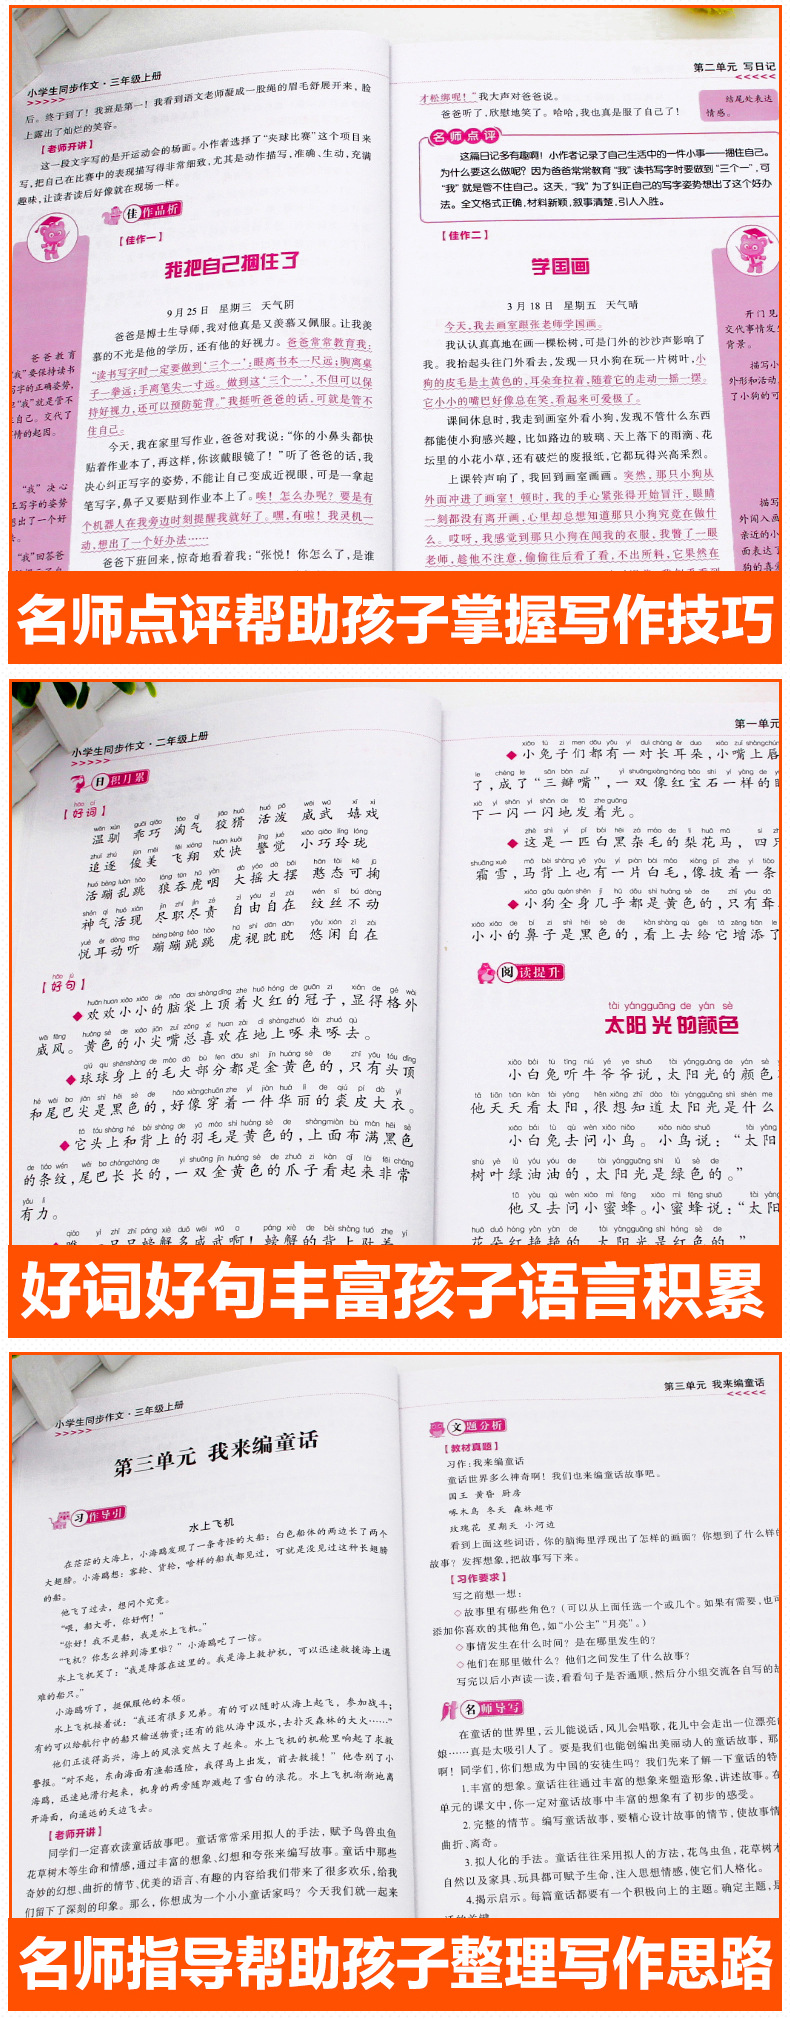 小学生同步作文·三年级上册
后。终于到了！我班是第一！我看到语文老师凝成一股绳的眉毛舒展开来，脸
上露出了灿烂的笑容。
【老师开讲】
这一段文字写的是开运动会的场面。小作者选择了“夹球比赛”这个项目来
写，把自己在比赛中的表现描写得非常细致，尤其是动作描写，准确、生动，充满
趣味，让读者读后好像就在现场一样。
佳作品析
【佳作一】
我把自己捆住了
9月25日 星期三 天气阴
爸爸是博士生导师，我对他真是又羡慕又佩服。让我羡
慕的不光是他的学历，还有他的好视力。爸爸常常教育我：
“读书写字时一定要做到‘三个一’：眼离书本一尺远；胸离桌
子一拳远；手离笔尖一寸远。做到这‘三个一’，不但可以保
持好视力，还可以预防驼背。”我挺听爸爸的话，可就是管不
住自己。
今天，我在家里写作业，爸爸对我说：“你的小鼻头都快
贴着作业本了，再这样，你该戴眼镜了！”听了爸爸的话，我
决心纠正写字的姿势，不能让自己变成近视眼，可是一拿起
笔写字，鼻子又要贴到作业本上了。唉！怎么办呢？要是有
个机器人在我旁边时刻提醒我就好了。嘿，有啦！我灵机一
动，想出了一个好办法……
爸爸下班回来，惊奇地看着我：“张悦！你怎么了，是谁
爸爸教育
“我”要保持读书
写字的正确姿势，
“我”就是管不
自己。交代了
情的起因。
“我”决心
正写字的姿势
想出了一个好
“我”回答爸
第二单元 写日记
才松绑呢！”我大声对爸爸说。
爸爸听了，欣慰地笑了。哈哈，我也真是服了自己了！
结尾处表达
情感。
名师点评
这篇日记多有趣啊！小作者记录了自己生活中的一件小事——捆住自己。
为什么要这么做呢？因为爸爸常常教育“我”读书写字时要做到“三个一”，可
“我”就是管不住自己。这天，“我”为了纠正自己的写字姿势想出了这个好办
法。全文格式正确，材料新颖，叙事清楚，引人入胜。
【佳作二】
学国画
3月18日 星期五 天气晴
今天，我去画室跟张老师学国画。
我认认真真地在画一棵松树，可是门外的沙沙声影响了
我。我抬起头往门外看去，发现一只小狗在玩一片树叶，小
狗的皮毛是土黄色的，耳朵耷拉着，随着它的走动一摇一摆。
它小小的嘴巴好像总在笑，看起来可爱极了。
课间休息时，我走到画室外看小狗，发现不管什么东西
都能使小狗感兴趣，比如路边的玻璃、天上落下的雨滴、花
坛里的小花小草，还有破烂的废报纸，它都玩得兴高采烈。
上课铃声响了，我回到画室画画。突然，那只小狗从
外面冲进了画室！顿时，我的手心紧张得开始冒汗，眼睛
一刻都没有离开画，心里却总想知道那只小狗究竟在做什
么。哎呀，我感觉到那只小狗在闻我的衣服，我瞥了一眼
老师，趁他不注意，偷偷往后看了看，不出所料，它果然在
开门见
交代事情发生
背景。
描写小
外形和活动
了小狗的可
描写
外闯入画
亲近的小
面表达了
狗的喜爱
名师点评帮助孩子掌握写作技巧
小学生同步作文·二年级上册
日积月累
【好词】
温驯 乖巧 淘气 狡猾 活泼 威武 嬉戏
追逐 俊美 飞翔 欢快 警觉 小巧玲珑
活蹦乱跳 狼吞虎咽 大摇大摆 憨态可掬
神气活现 尽职尽责 自由自在 纹丝不动
悦耳动听 蹦蹦跳跳 虎视眈眈 悠闲自在
【好句】
◆欢欢小小的脑袋上顶着火红的冠子，显得格外
威风。黄色的小尖嘴总喜欢在地上啄来啄去。
◆球球身上的毛大部分都是金黄色的，只有头顶
和尾巴尖是黑色的，好像穿着一件华丽的裘皮大衣。
◆它头上和背上的羽毛是黄色的，上面布满黑色
的条纹，尾巴长长的，一双金黄色的爪子看起来非常
有力。
第一单元
◆小兔子们都有一对长耳朵，小嘴上唇
了，成了“三瓣嘴”，一双像红宝石一样的眼
下一闪一闪地发着光。
◆这是一匹白黑杂毛的梨花马，四只
霜雪，马背上也有一片白毛，像披着一条
◆小狗全身几乎都是黄色的，只有耷
小小的鼻子是黑色的，看上去给它增添了
阅读提升
tài yángguāng de yán sè
太阳光的颜色
小白兔听牛爷爷说，太阳光的颜色
他天天看太阳，很想知道太阳光是什么
小白兔去问小鸟。小鸟说：“太阳
树叶绿油油的，太阳光是绿色的。”
他又去问小蜜蜂。小蜜蜂说：“太阳
花朵红艳艳的，太阳光是红色的。”
好词好句丰富孩子语言积累
小学生同步作文·三年级上册
第三单元 我来编童话
习作导引
水上飞机
在茫茫的大海上，小海鸥发现了一条奇怪的大船：白色船体的两边长了两个
大翅膀。小海鸥想：客轮、货轮，啥样的船我都见过，可就是没见过这种长翅膀
的船。
他飞了过去，想问个究竟。
“喂，船大哥，你好啊！”
“你好！我不是船，我是水上飞机。”
“飞机？你怎么掉到海里啦？”小海鸥吃了一惊。
水上飞机笑了：“我是降落在这里的。我是海上救护机，可以迅速救援海上遇
难的船只。”
小海鸥听了，挺佩服他的本领。
水上飞机接着说：“我还有很多兄弟。有的可以随时从海上起飞，参加战斗；
有的可以给航行中的船只输送物资；还有的能从海中汲水，去扑灭森林的大火……”
他们正谈得高兴，海上的风浪突然大了起来。水上飞机的机舱里响起了求救
警报。“对不起，东南海面有渔船遇险，我得马上出发，前去救援！”他告别了小
海鸥，迅速地滑行起来，机身的两旁随即溅起了雪白的浪花。水上飞机渐渐地离
开海面，向遥远的天边飞去。
【老师开讲】
同学们一定喜欢读童话故事吧。童话常常采用拟人的手法，赋予鸟兽虫鱼
花草树木等生命和情感，通过丰富的想象、幻想和夸张来编写故事。童话中那些
奇妙的幻想、曲折的情节、优美的语言、有趣的内容给我们带来了很多欢乐，给我
们留下了深刻的印象。那么，你想成为一个小小童话家吗？今天我们就一起来
第三单元 我来编童话
文题分析
【教材真题】
习作：我来编童话
童话世界多么神奇啊！我们也来编童话故事吧。
国王 黄昏 厨房
啄木鸟 冬天 森林超市
玫瑰花 星期天 小河边
看到上面这些词语，你的脑海里浮现出了怎样的画面？你想到了什么样的
故事？发挥想象，把故事写下来。
【习作要求】
写之前想一想：
◇故事里有哪些角色？（可以从上面任选一个或几个。如果有需要，也可
添加你喜欢的其他角色，如“小公主”“月亮”。）
◇事情发生在什么时间？是在哪里发生的？
◇他们在那里做什么？他们之间发生了什么故事？
写完以后小声读一读，看看句子是否通顺，然后分小组交流各自写的故
名师导写
在童话的世界里，云儿能说话，风儿会唱歌，花儿中会走出一位漂亮
娘……真是太吸引人了。要是我们也能创编出美丽动人的童话故事，那
啊！同学们，你们想成为中国的安徒生吗？我们先来了解一下童话的特
1.丰富的想象。童话往往通过丰富的想象来塑造形象，讲述故事。在
单元的课文中，你一定对童话故事中丰富的想象有了初步的感受。
2.完整的情节。编写童话故事，要精心设计故事的情节，使故事情
曲折、离奇。
3.拟人化的手法。童话往往采用拟人的方法，花鸟虫鱼，花草树木
自然以及家具、玩具都可赋予生命，注入思想情感，使它们人格化。
4.揭示启示。每篇童话都要有一个积极向上的主题。确定主题，是
名师指导帮助孩子整理写作思路